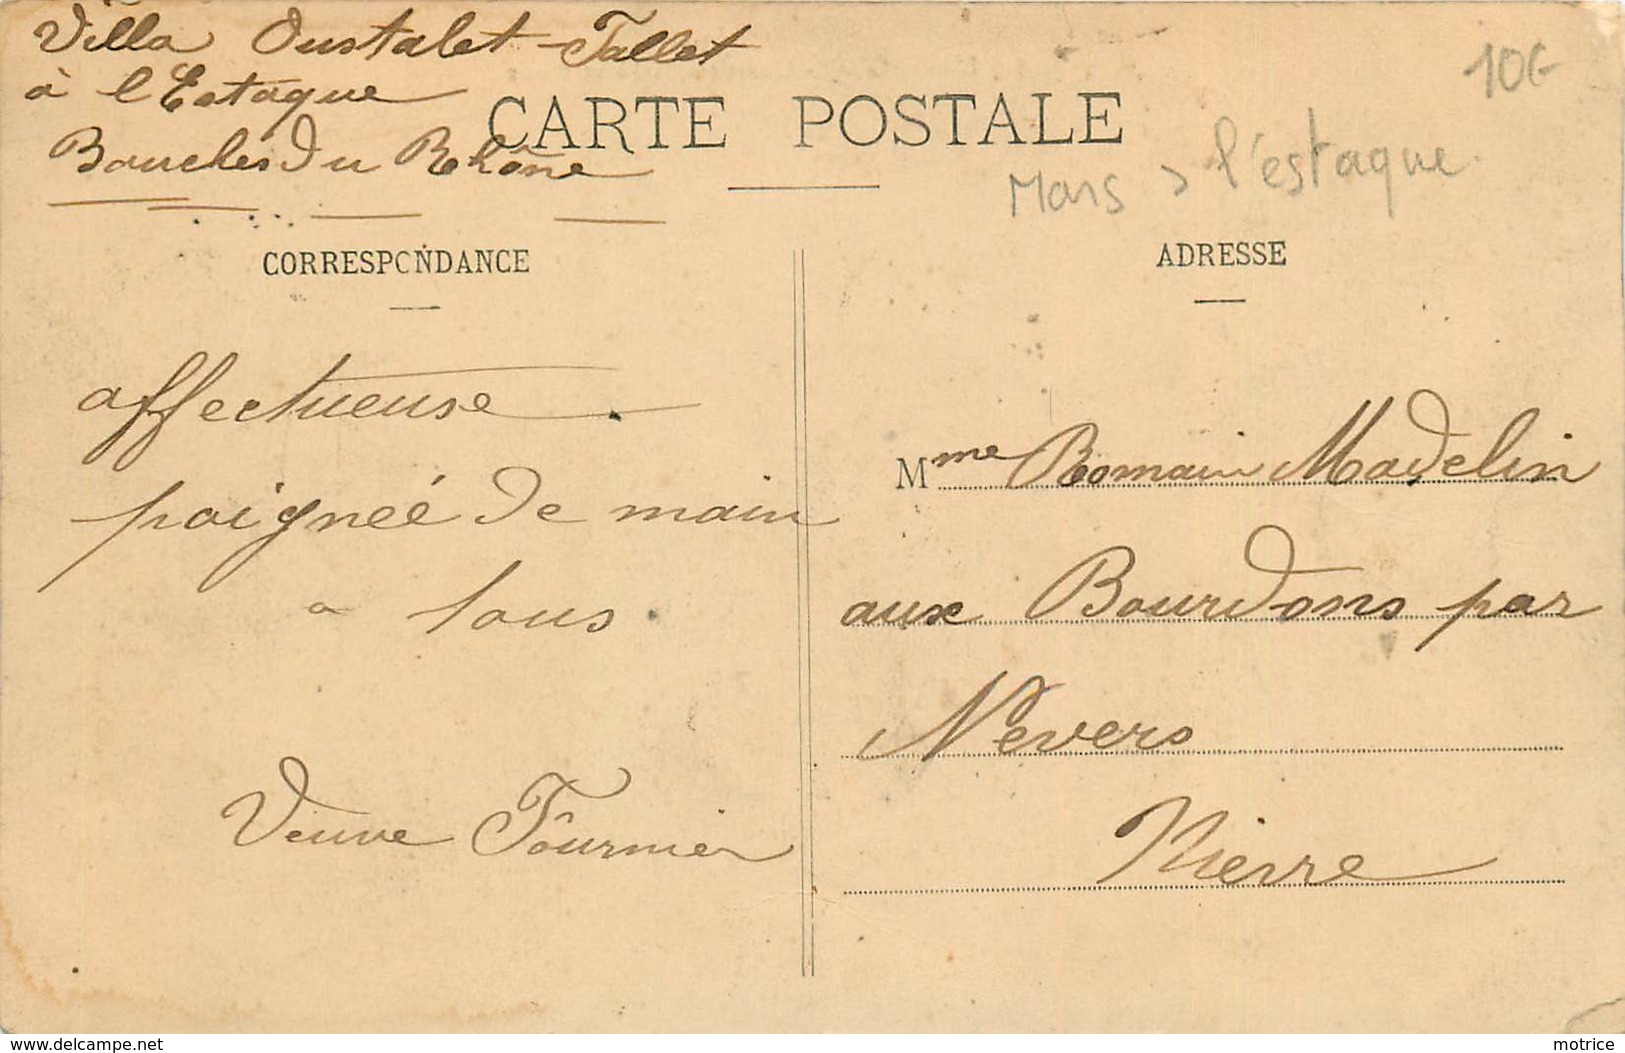 Villa Oustalet-Tallet
à l'Estaque
Bouches du Rhône
CARTE POSTALE
10€
Mars > l'estaque
CORRESPONDANCE
ADRESSE
affectueuse
poignéé de main
a tous
Veuve Fournier
Mme Romain Madelin
aux Bourdons par
Nevers
Nièvre
delcampe.net
motrice